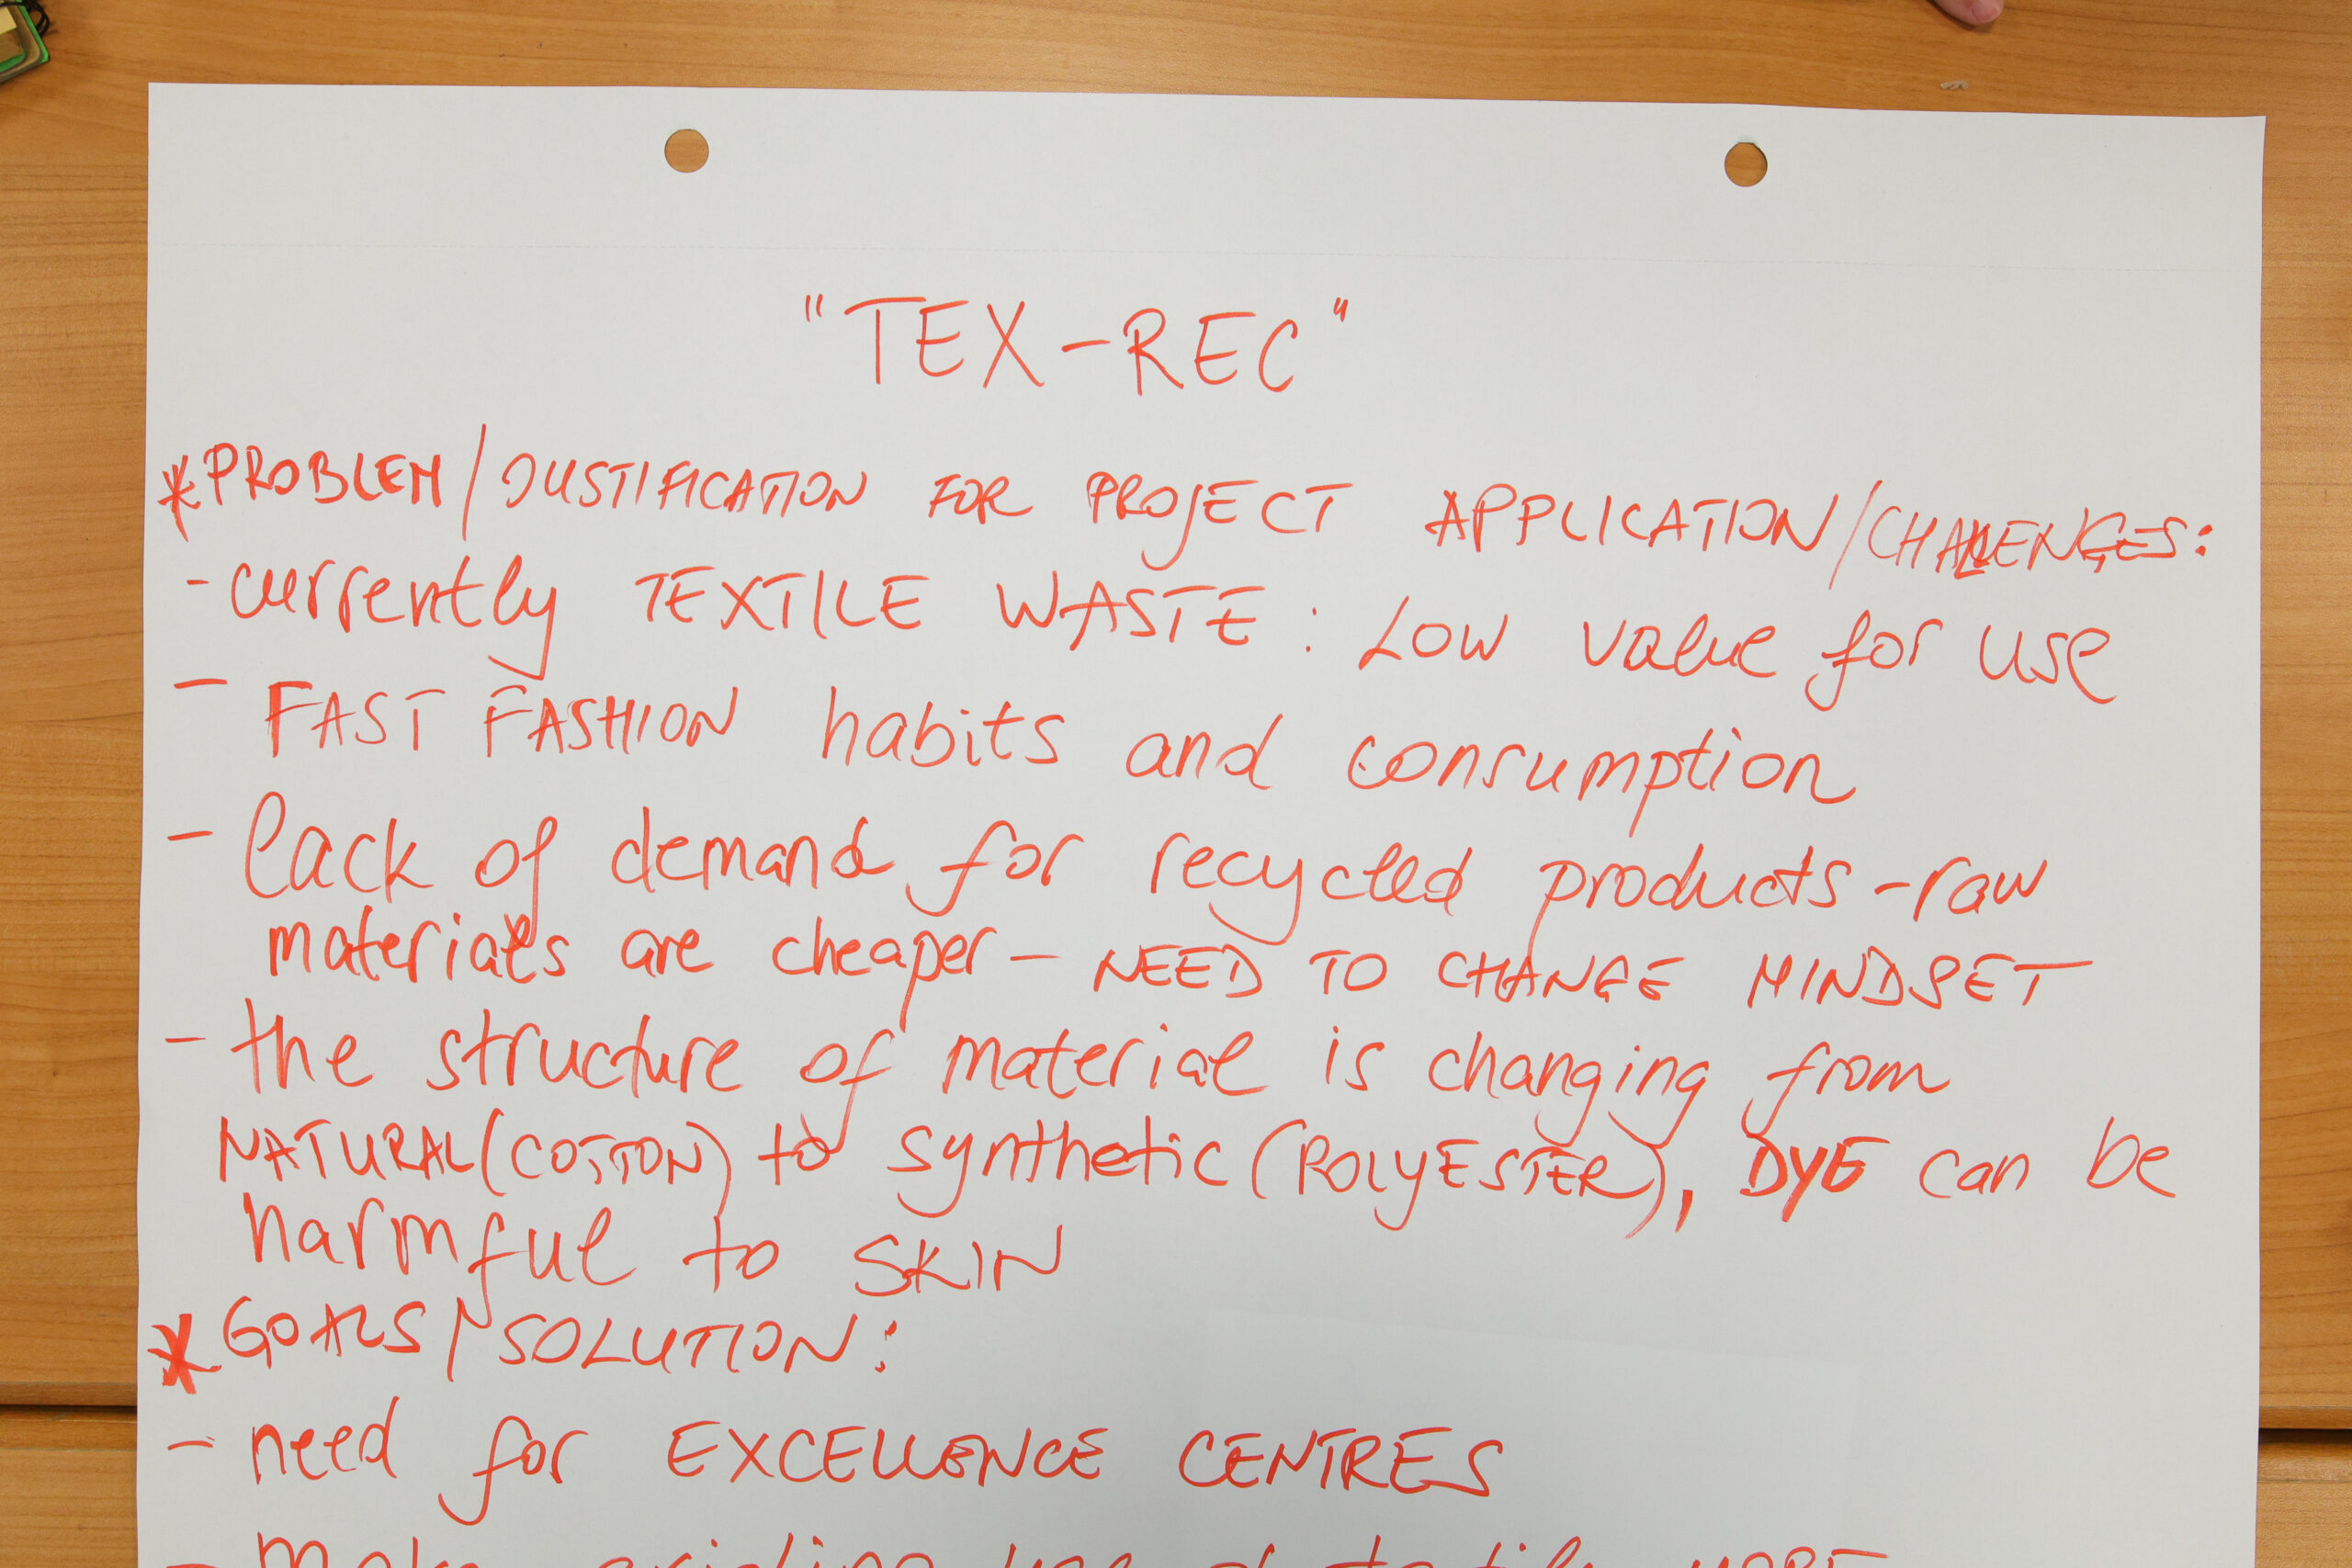 "TEX-REC"
*PROBLEM/JUSTIFICATION FOR PROJECT APPLICATION/CHALLENGES:
- currently TEXTILE WASTE: LOW value for use
- FAST FASHION habits and consumption
- lack of demand for recycled products - raw
materials are cheaper - NEED TO CHANGE MINDSET
- the structure of material is changing from
NATURAL (COTTON) to synthetic (POLYESTER), DYE can be
harmful to SKIN
*GOALS/SOLUTION:
- need for EXCELLENCE CENTRES
- existing use of textile MORE